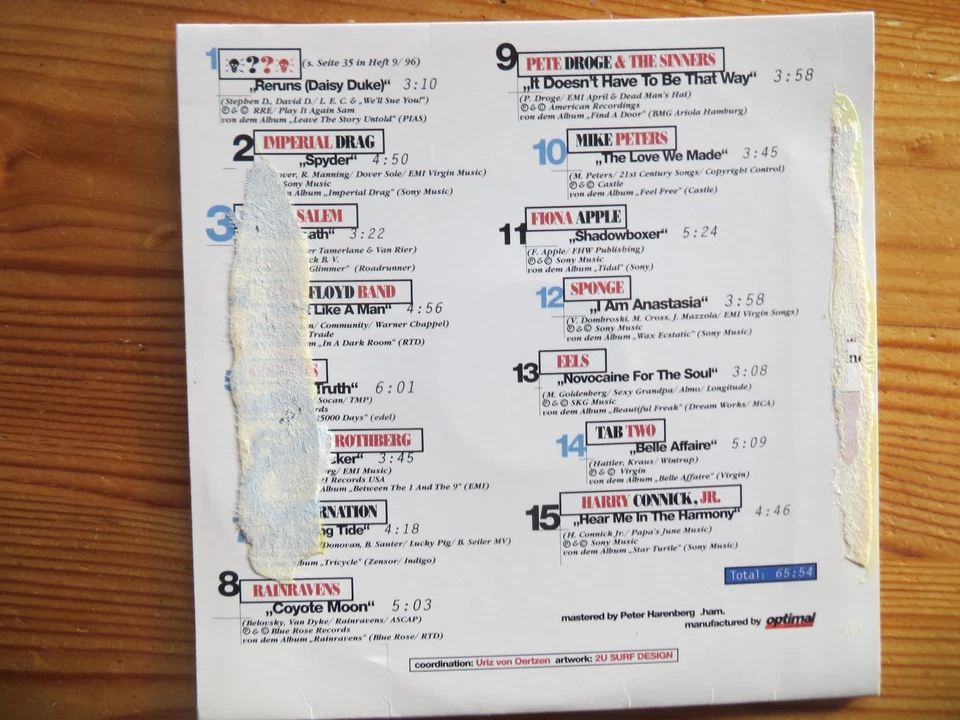 1 ?? (s. Seite 35 in Heft 9/ 96)
„Reruns (Daisy Duke)“ 3:10
(Stephen D., David D./ L. E. C. & „We'll Sue You!“)
Ⓟ & © RRE/ Play It Again Sam
von dem Album „Leave The Story Untold“ (PIAS)
2 IMPERIAL DRAG
„Spyder“ 4:50
over, R. Manning/ Dover Sole/ EMI Virgin Music)
Sony Music
Album „Imperial Drag“ (Sony Music)
3 SALEM
ath“ 3:22
er Tamerlane & Van Rier)
ck B. V.
Glimmer“ (Roadrunner)
FLOYD BAND
t Like A Man“ 4:56
n/ Community/ Warner Chappel)
Trade
m „In A Dark Room“ (RTD)
S
Truth“ 6:01
Socan/ TMP)
rds
25000 Days“ (edel)
ROTHBERG
cker“ 3:45
rg/ EMI Music)
21 Records USA
Album „Between The 1 And The 9“ (EMI)
RNATION
ng Tide“ 4:18
Donovan, B. Sauter/ Lucky Pig/ B. Seiler MV)
bum „Tricycle“ (Zensor/ Indigo)
8 RAINRAVENS
„Coyote Moon“ 5:03
(Belovsky, Van Dyke/ Rainravens/ ASCAP)
Ⓟ & © Blue Rose Records
von dem Album „Rainravens“ (Blue Rose/ RTD)
9 PETE DROGE & THE SINNERS
„It Doesn't Have To Be That Way“ 3:58
(P. Droge/ EMI April & Dead Man's Hat)
Ⓟ & © American Recordings
von dem Album „Find A Door“ (BMG Ariola Hamburg)
10 MIKE PETERS
„The Love We Made“ 3:45
(M. Peters/ 21st Century Songs/ Copyright Control)
Ⓟ & © Castle
von dem Album „Feel Free“ (Castle)
11 FIONA APPLE
„Shadowboxer“ 5:24
(F. Apple/ FHW Publishing)
Ⓟ & © Sony Music
von dem Album „Tidal“ (Sony)
12 SPONGE
„I Am Anastasia“ 3:58
(V. Dombroski, M. Cross, J. Mazzola/ EMI Virgin Songs)
Ⓟ & © Sony Music
von dem Album „Wax Ecstatic“ (Sony Music)
13 EELS
„Novocaine For The Soul“ 3:08
(M. Goldenberg/ Sexy Grandpa/ Almo/ Longitude)
Ⓟ & © SKG Music
von dem Album „Beautiful Freak“ (Dream Works/ MCA)
14 TAB TWO
„Belle Affaire“ 5:09
(Hattler, Kraus/ Wintrup)
Ⓟ & © Virgin
von dem Album „Belle Affaire“ (Virgin)
15 HARRY CONNICK, JR.
„Hear Me In The Harmony“ 4:46
(H. Connick Jr./ Papa's June Music)
Ⓟ & © Sony Music
von dem Album „Star Turtle“ (Sony Music)
Total: 65:54
mastered by Peter Harenberg .ham.
manufactured by optimal
coordination: Urlz von Oertzen artwork: 2U SURF DESIGN